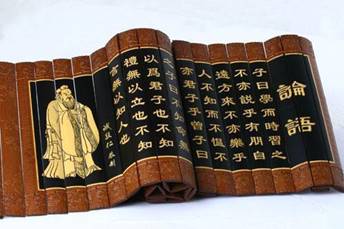 論語
子曰學而時習之
不亦說乎有朋自
遠方來不亦樂乎
人不知而不慍不
亦君子乎曾子曰
子曰不知命無
以爲君子也不知
禮無以立也不知
言無以知人也